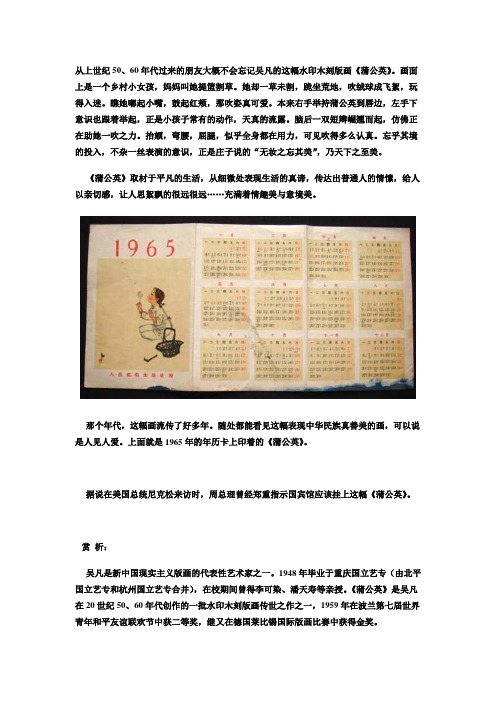 从上世纪50、60年代过来的朋友大概不会忘记吴凡的这幅水印木刻版画《蒲公英》。画面
上是一个乡村小女孩，妈妈叫她提篮割草。她却一草未割，跪坐荒地，吹绒球成飞絮，玩
得入迷。瞧她嘟起小嘴，鼓起红颊，那吹姿真可爱。本来右手举持蒲公英到唇边，左手下
意识也跟着举起，正是小孩子常有的动作，天真的流露。脑后一双短辫崛翘而起，仿佛正
在助她一吹之力。抬颏，弯腰，屈腿，似乎全身都在用力，可见吹得多么认真。忘乎其境
的投入，不杂一丝表演的意识，正是庄子说的“无妆之忘其美”，乃天下之至美。
《蒲公英》取材于平凡的生活，从细微处表现生活的真谛，传达出普通人的情愫，给人
以亲切感，让人思絮飘的很远很远……充满着情趣美与意境美。
1965
一月
二月
四月
五月
六月
七月
八月
九月
十月
十一月
十二月
人民美术出版社
那个年代，这幅画流传了好多年。随处都能看见这幅表现中华民族真善美的画，可以说
是人见人爱。上面就是1965年的年历卡上印着的《蒲公英》。
据说在美国总统尼克松来访时，周总理曾经郑重指示国宾馆应该挂上这幅《蒲公英》。
赏 析：
吴凡是新中国现实主义版画的代表性艺术家之一。1948年毕业于重庆国立艺专（由北平
国立艺专和杭州国立艺专合并），在校期间曾得李可染、潘天寿等亲授。《蒲公英》是吴凡
在20世纪50、60年代创作的一批水印木刻版画传世之作之一，1959年在波兰第七届世界
青年和平友谊联欢节中获二等奖，继又在德国莱比锡国际版画比赛中获得金奖。